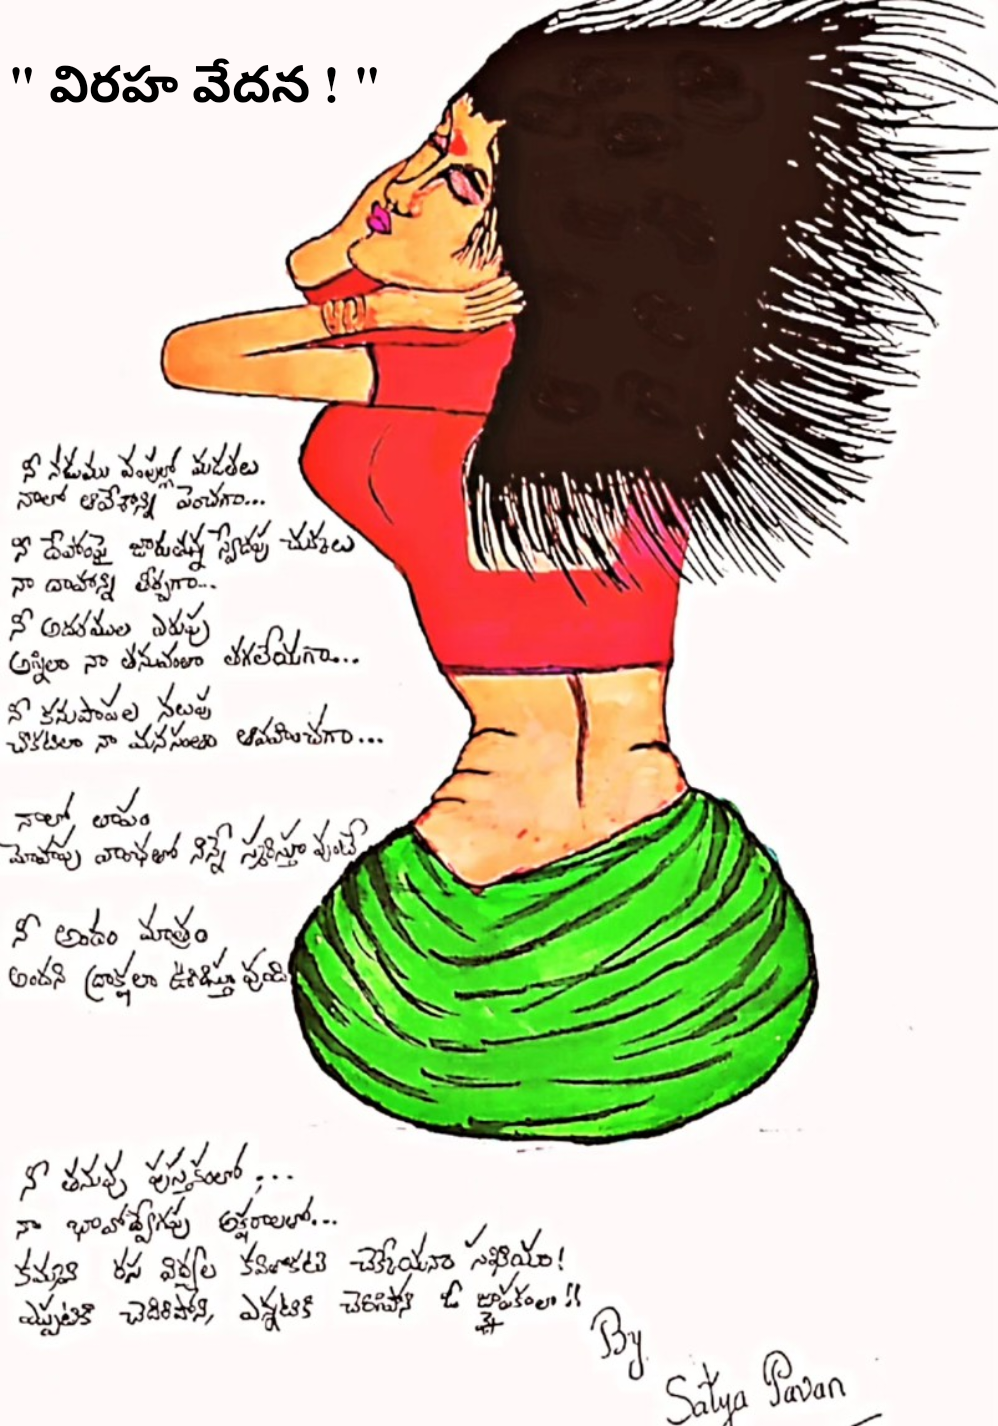 " విరహ వేదన ! "
నీ నడుము వంపుల్లో మడతలు
నాలో ఆవేశాన్ని పెంచగా...
నీ దేహంపై జారుతున్న స్వేదపు చుక్కలు
నా దాహాన్ని తీర్చగా...
నీ అదరముల ఎరుపు
అగ్నిలా నా తనువంతా తగలేయగా...
నీ కనుపాపల నలుపు
చీకటిలా నా మనసంతా ఆవహించగా...
నాలో తాపం
మోహపు వాంఛలతో నిన్నే స్మరిస్తూ వుంటే
నీ అందం మాత్రం
అందని ద్రాక్షలా ఊరిస్తూ వుంది
నీ తనువు పుస్తకంలో ...
నా భావోద్వేగపు అక్షరాలతో...
కమ్మని రస కవితొకటి చెక్కేయనా సఖియా!
ఎప్పటికీ చెదిరిపోని, ఎన్నటికీ చెరిగిపోని ఓ జ్ఞాపకంలా !!
By
Satya Pavan